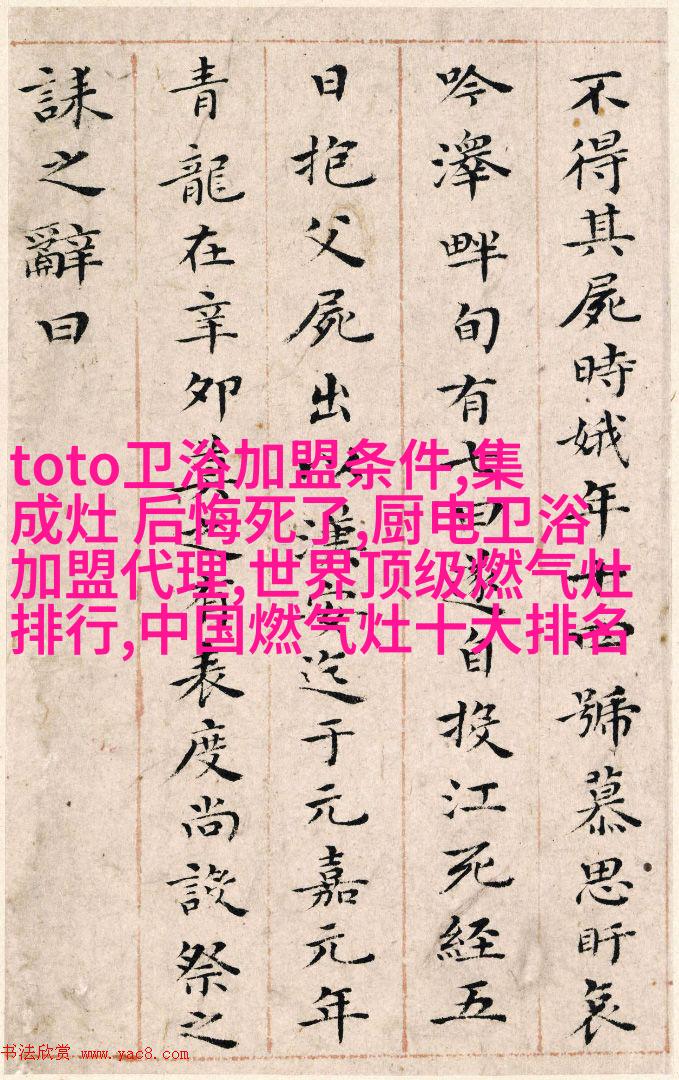 不得其屍時娥年十四號慕思盱哀
吟澤畔旬有七日遂自投江死經五
日抱父屍出以漢安迄于元嘉元年
青龍在辛卯莫之有表度尚設祭之
誄之辭曰
toto卫浴加盟条件,集
成灶 后悔死了,厨电卫浴
加盟代理,世界顶级燃气灶
排行,中国燃气灶十大排名
书法欣赏 www.yac8.com